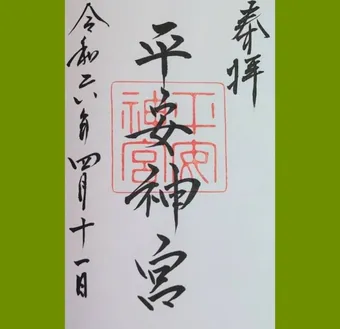 奉拝
平安神宮
平安
神宮
令和六年四月十一日